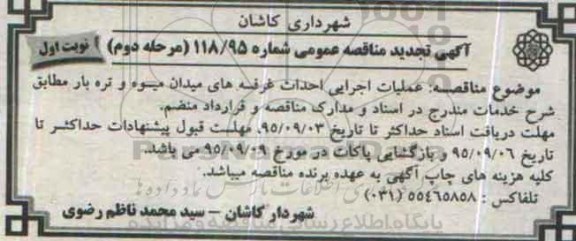 شهرداری کاشان
آگهی تجدید مناقصه عمومی شماره ۱۱۸/۹۵ (مرحله دوم)
نوبت اول
موضوع مناقصه: عملیات اجرایی احداث غرفه های میدان میوه و تره بار مطابق
شرح خدمات مندرج در اسناد و مدارک مناقصه و قرارداد منضم.
مهلت دریافت اسناد حداکثر تا تاریخ ۹۵/۰۹/۰۳، مهلت قبول پیشنهادات حداکثر تا
تاریخ ۹۵/۰۹/۰۶ و بازگشایی پاکات در مورخ ۹۵/۰۹/۰۹ می باشد.
کلیه هزینه های چاپ آگهی به عهده برنده مناقصه میباشد.
تلفاکس : ۵۵۴۶۵۸۵۸ (۰۳۱)
شهردار کاشان – سید محمد ناظم رضوی